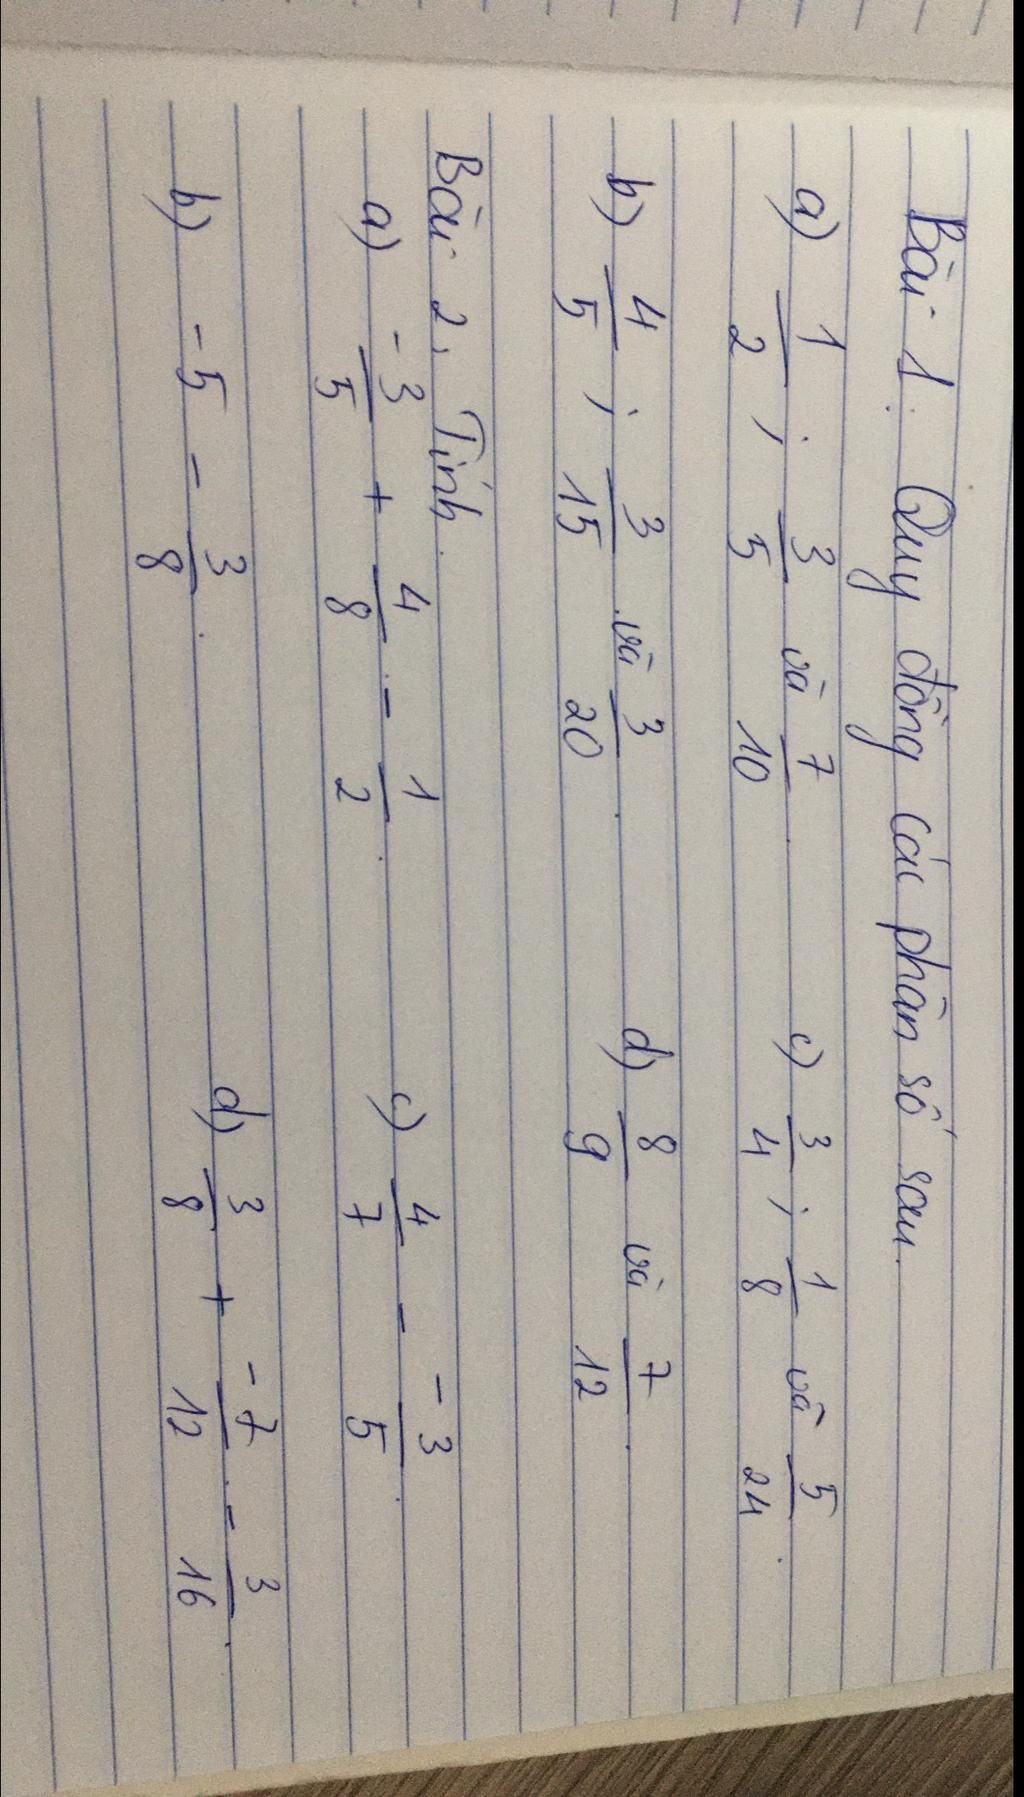 Bài 1. Quy đồng các phân số sau.
a) 1/2 ; 3/5 và 7/10 c) 3/4 ; 1/8 và 5/24.
b) 4/5 ; 3/15 và 3/20. d) 8/9 và 7/12.
Bài 2. Tính.
a) -3/5 + 4/8 - 1/2. c) 4/7 - -3/5.
b) -5 - 3/8. d) 3/8 + -7/12 - 3/16.